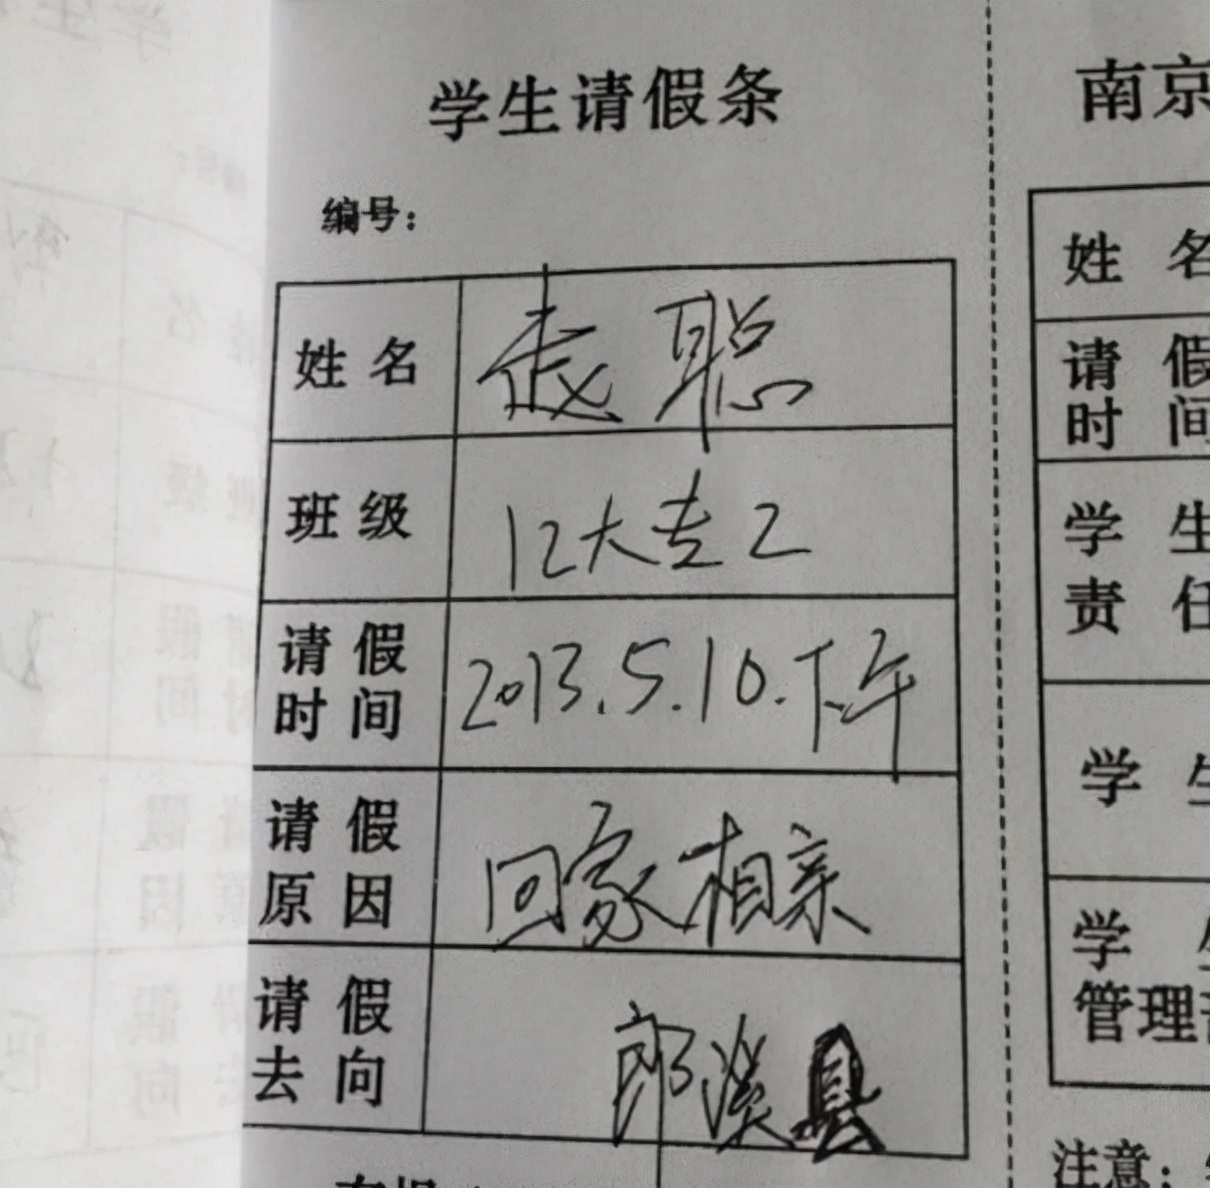 学生请假条
编号：
姓名 袁聪
班级 12大专2
请假时间 2013.5.10.下午
请假原因 回家相亲
请假去向 郎溪县
南京
姓名
请假
时间
学生
责任
学生
学
管理
注意：